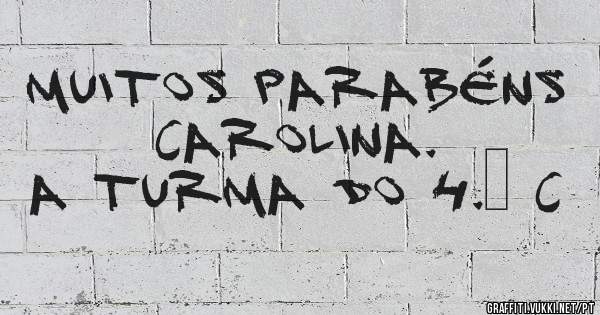 MUITOS PARABÉNS
CAROLINA.
A TURMA DO 4.□ C
GRAFFITI.VUKKI.NET/PT